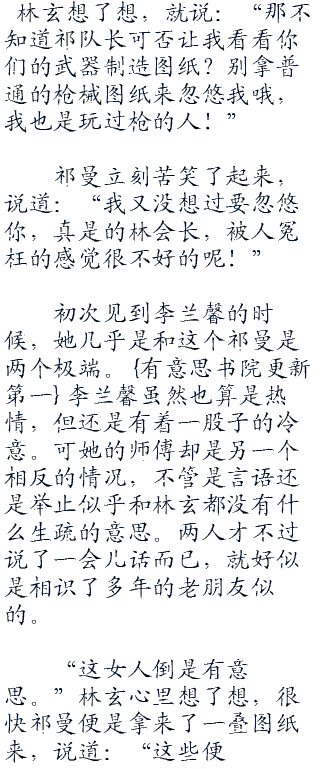 林玄想了想，就说：“那不
知道祁队长可否让我看看你
们的武器制造图纸？别拿普
通的枪械图纸来忽悠我哦，
我也是玩过枪的人！”
祁曼立刻苦笑了起来，
说道：“我又没想过要忽悠
你，真是的林会长，被人冤
枉的感觉很不好的呢！”
初次见到李兰馨的时
候，她几乎是和这个祁曼是
两个极端。{有意思书院更新
第一}李兰馨虽然也算是热
情，但还是有着一股子的冷
意。可她的师傅却是另一个
相反的情况，不管是言语还
是举止似乎和林玄都没有什
么生疏的意思。两人才不过
说了一会儿话而已，就好似
是相识了多年的老朋友似
的。
“这女人倒是有意
思。”林玄心里想了想，很
快祁曼便是拿来了一叠图纸
来，说道：“这些便